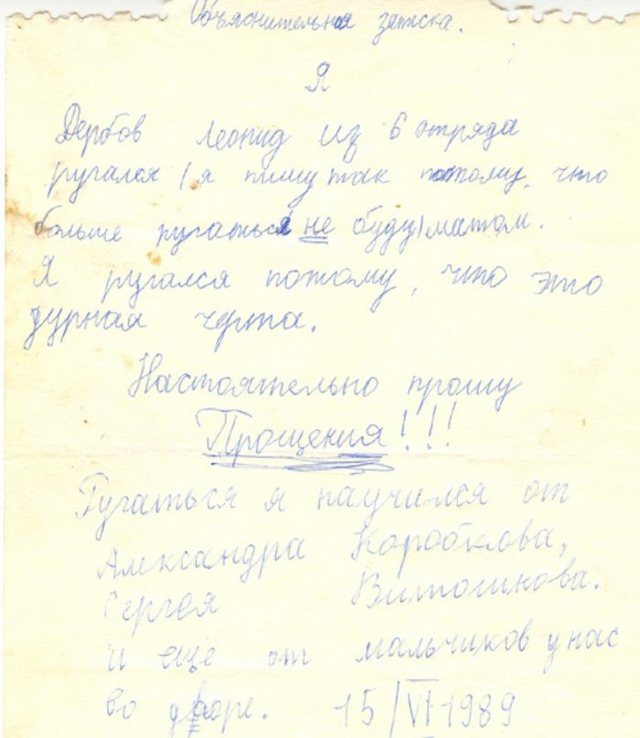 Объяснительная записка.
Я
Дербов Леонид из 6 отряда
ругался (я пишу так потому, что
больше ругаться не буду) матом.
Я ругался потому, что это
дурная черта.
Настоятельно прошу
Прощения!!!
Ругаться я научился от
Александра Коробкова,
Сергея
И ещё от мальчиков у нас
во дворе. 15/VI 1989